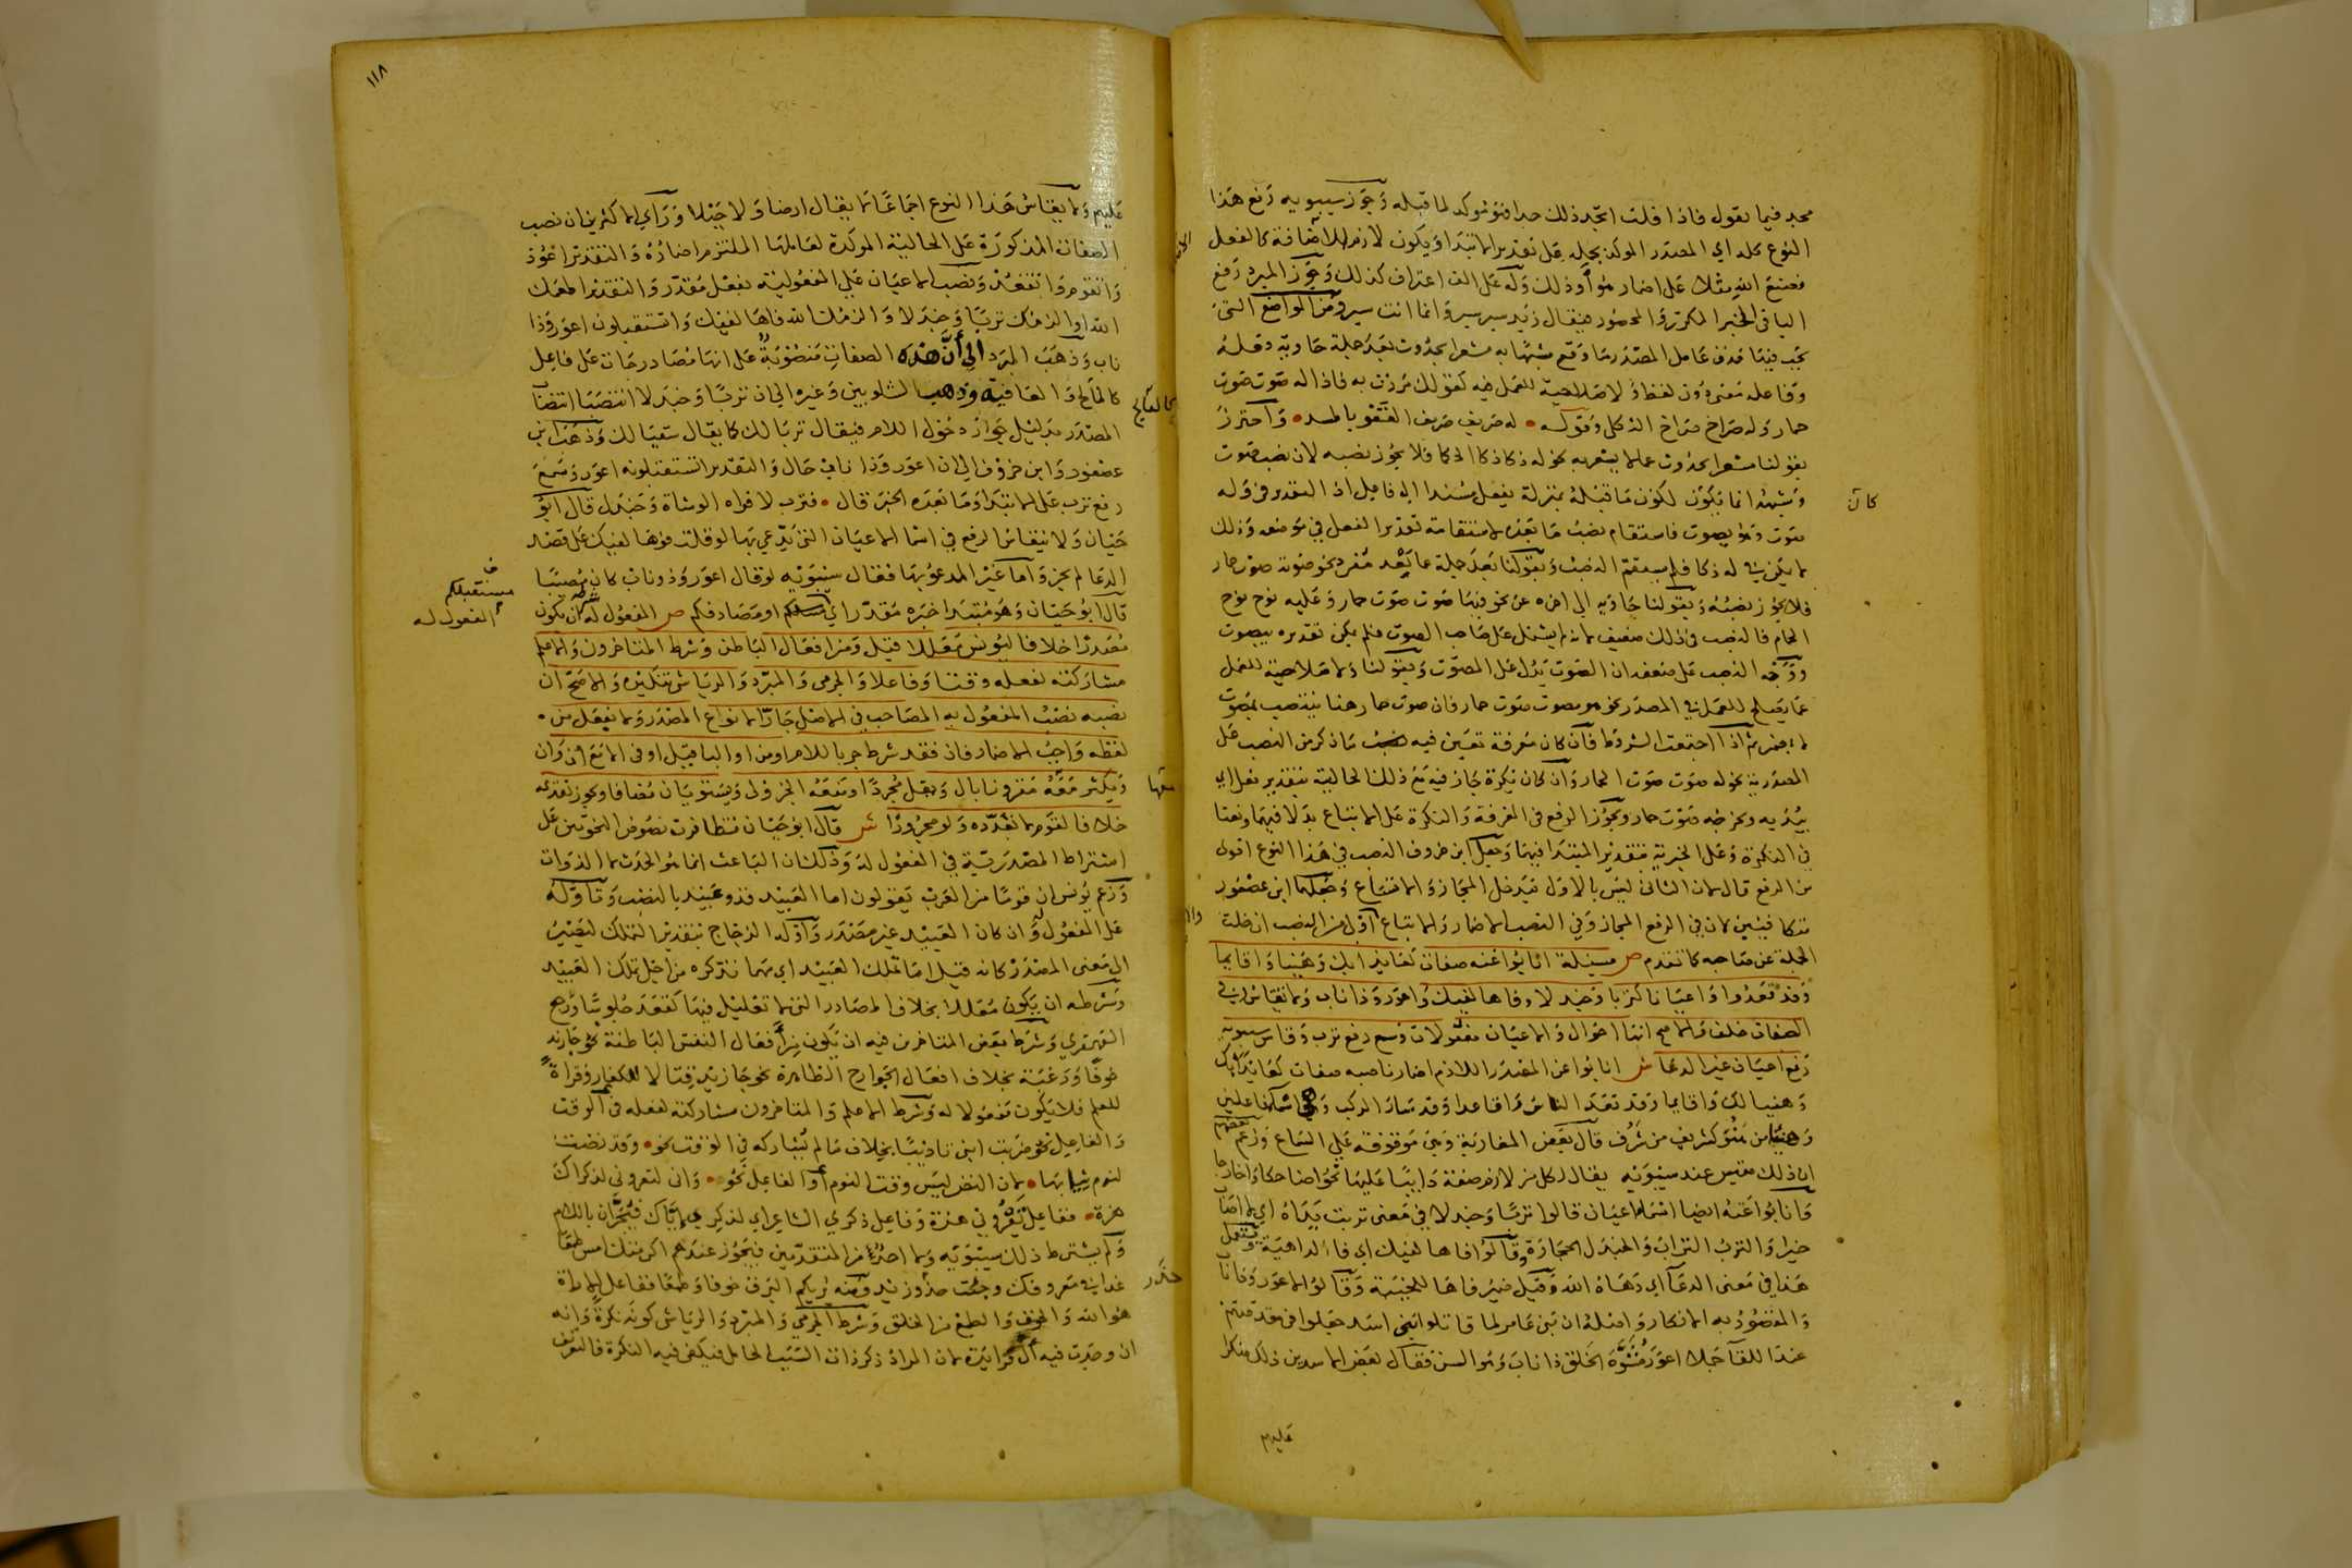 مجد فيما يقول فاذا قلت اتجد ذلك جدا فهو مؤكد لما قبله وجوز سيبويه رفع هذا
النوع كله اي المصدر المؤكد بجملة على تقدير المبتدا ويكون لازما للاضافة كالفعل
فصنع الله مثلا على اضمار هو او ذلك وله على الف اعتراف كذلك وجوز المبرد رفع
الباقي الخبر المكرر والمحصور فيقال زيد سير سير وانما انت سير ومن المواضع التي
يجب فيها حذف عامل المصدر ما وقع مشبها به مشعرا بحدوث بعد جملة حاوية فعله
وفاعله معنى دون لفظ ولا صلاحية للعمل فيه كقولك مررت به فاذا له صوت صوت
حمار وله صراخ صراخ الثكلى وقوله له صريف صريف القعو بالمسد واحترز
بقولنا مشعرا بحدوث عما لا يشعر به نحو له ذكا ذكا الحكما فلا يجوز نصبه لان نصب صوت
وشبهه انما يكون لكون ما قبله بمنزلة يفعل مسندا الى فاعل اذ التقدير في وله
كان
صوت وهو يصوت فاستقام نصب ما بعده لاستقامة تقدير الفعل في موضعه وذلك
لا يمكن في له ذكا فلم يستقم النصب وبقولنا بعد جملة عما بعد مفرد نحو صوته صوت حمار
فلا يجوز نصبه وبقولنا حاوية الى اخره عن نحو فيها صوت صوت حمار وعليه نوح نوح
الحمام فالنصب في ذلك ضعيف لانه لم يشتمل على صاحب الصوت فلم يمكن تقديره بيصوت
ووجه النصب على ضعفه ان الصوت يدل على المصوت وبقولنا ولا صلاحية للعمل
عما يصلح للعمل في المصدر نحو هو مصوت صوت حمار فان صوت حمار هنا ينتصب بمصوت
لا بمضمر ثم اذا اجتمعت الشروط فان كان معرفة تعين فيه ما ذكر من النصب على
المصدرية نحو له صوت صوت الحمار وان كان نكرة جاز فيه مع ذلك الحالية بتقدير فعل اي
يبديه ويخرجه صوت حمار ويجوز الرفع في المعرفة والنكرة على الاتباع بدلا فيهما ونعتا
في النكرة وعلى الخبرية بتقدير المبتدا فيهما وجعل ابن خروف النصب في هذا النوع اقوى
من الرفع قال لان الثاني ليس بالاول فيدخل المجاز والاتساع وجعلهما ابن عصفور
متكافيين لان في الرفع المجاز وفي النصب الاضمار والاتباع اولى من النصب ان خلت
الجملة عن صاحبه كما تقدم ص مسئلة انابوا عنه صفات كعائذا بك وهنيئا واقائما
وقد قعدوا واعيانا كتربا وجندلا وفاها لفيك واعور وذا ناب ولا تقاس في
الصفات خلف والاصح انها احوال والاعيان مفعولات وسمع رفع ترب وقاس سيبويه
رفع اعيان غير الدعا ش انابوا عن المصدر اللازم اضمار ناصبه صفات كعائذا بك
وهنيئا لك واقائما وقد قعد الناس واقاعدا وقد سار الركب وهي اسما فاعلين
وهنيئا من هنؤ كشريف من شرف قال بعض المغاربة وهي موقوفة على السماع وزعم بعضهم
ان ذلك مقيس عند سيبويه يقال لكل من لازم صفة دائبا عليها نحو اضاحكا واخارجا
وانابوا عنه ايضا اسما اعيان قالوا تربا وجندلا في معنى تربت يداه اي لا اصاب
خيرا والترب التراب والجندل الحجارة وقالوا فاها لفيك اي فا الداهية ويستعمل
هذا في معنى الدعا اي دهاه الله وقيل ضمير فاها للخيبة وقالوا اعور وذا ناب
والمقصود به الانكار واصله ان بني عامر لما قاتلوا بني اسد جعلوا في مقدمتهم
عند اللقا جملا اعور مشوه الخلق ذا ناب وهو السن فقال بعض الاسديين ذلك منكرا
عليهم
١١٨
عليهم ولا يقاس هذا النوع اجماعا لا يقال ارضا ولا جبلا وراي الاكثرين ان نصب
الصفات المذكورة على الحالية المؤكدة لعاملها الملتزم اضماره والتقدير اعوذ
واتقوم واتقعد ونصب الاعيان على المفعولية بفعل مقدر والتقدير اطعمك
الله او الزمك تربا وجندلا والزم الله فاها لفيك واتستقبلون اعور وذا
ناب وذهب المبرد الى أن هذه الصفات منصوبة على انها مصادر جات على فاعل
كالفالج والعافية وذهب الشلوبين وغيره الى ان تربا وجندلا انتصبا انتصاب
كالفالج
المصدر بدليل جواز دخول اللام فيقال تربا لك كما يقال سقيا لك وذهب ابن
عصفور وابن خروف الى ان اعور وذا ناب حال والتقدير اتستقبلونه اعور وسمع
رفع ترب على الابتدا وما بعده الخبر قال فترب لافواه الوشاة وجندل قال ابو
حيان ولا ينقاس الرفع في اسما الاعيان التي يدعى بها لو قلت فوها لفيك على قصد
الدعا لم يجز واما غير المدعو بها فقال سيبويه لو قال اعور وذو ناب كان مصيبا
قال ابو حيان وهو مبتدا خبره مقدر اي او مصادفكم ص المفعول له شرطه ان يكون
مستقبلكم
المفعول له
مصدرا خلافا ليونس معللا قيل ومن افعال الباطن وشرط المتاخرون والاعلم
مشاركته لفعله وقتا وفاعلا والجرمي والمبرد والرياشي تنكيره والاصح ان
نصبه نصب المفعول به المصاحب في الاصل جارا لا نواع المصدر ولا بفعل من
لفظه واجب الاضمار فان فقد شرط جر باللام او من او البا قيل او في الا مع ان وان
ويكثر معه مقرونا بال ويقل مجردا ومنعه الجزولي ويستويان مضافا ويجوز تقديمه
معها
خلافا لقوم لا تعدده ولو مجرورا ش قال ابو حيان تتظافرت نصوص النحويين على
اشتراط المصدرية في المفعول له وذلك ان الباعث انما هو الحدث لا الذوات
وزعم يونس ان قوما من العرب يقولون اما العبيد فذو عبيد بالنصب وتاوله
على المفعول له وان كان العبيد غير مصدر واوله الزجاج بتقدير التملك ليصير
الى معنى المصدر كانه قيل اما تملك العبيد اي مهما تذكره من اجل تملك العبيد
وشرطه ان يكون معللا بخلاف المصادر التي لا تعليل فيها كقعد جلوسا ورجع
القهقرى وشرط بعض المتاخرين فيه ان يكون من أفعال النفس الباطنة نحو جا زيد
خوفا ورغبة بخلاف افعال الجوارح الظاهرة نحو جا زيد قتالا للكفار وقراة
للعلم فلا يكون مفعولا له وشرط الاعلم والمتاخرون مشاركته لفعله في الوقت
والفاعل نحو ضربت ابني تاديبا بخلاف ما لم يشاركه في الوقت نحو وقد نضت
لنوم ثيابها لان النض ليس وقت النوم أو الفاعل نحو واني لتعروني لذكراك
هزة ففاعل تعروني هزة وفاعل ذكرى الشاعر اي لذكري اياك فيجران باللام
ولم يشترط ذلك سيبويه ولا احد من المتقدمين فيجوز عندهم اكرمتك امس طمعا
غدا في معروفك وجئت حذر زيد ومنه يريكم البرق خوفا وطمعا ففاعل الاراة
حذر
هو الله والخوف والطمع من الخلق وشرط الجرمي والمبرد والرياشي كونه نكرة وانه
ان وجدت فيه أل فزائدة لان المراد ذكر ذات السبب الحامل فيكفي فيه النكرة فالتعريف